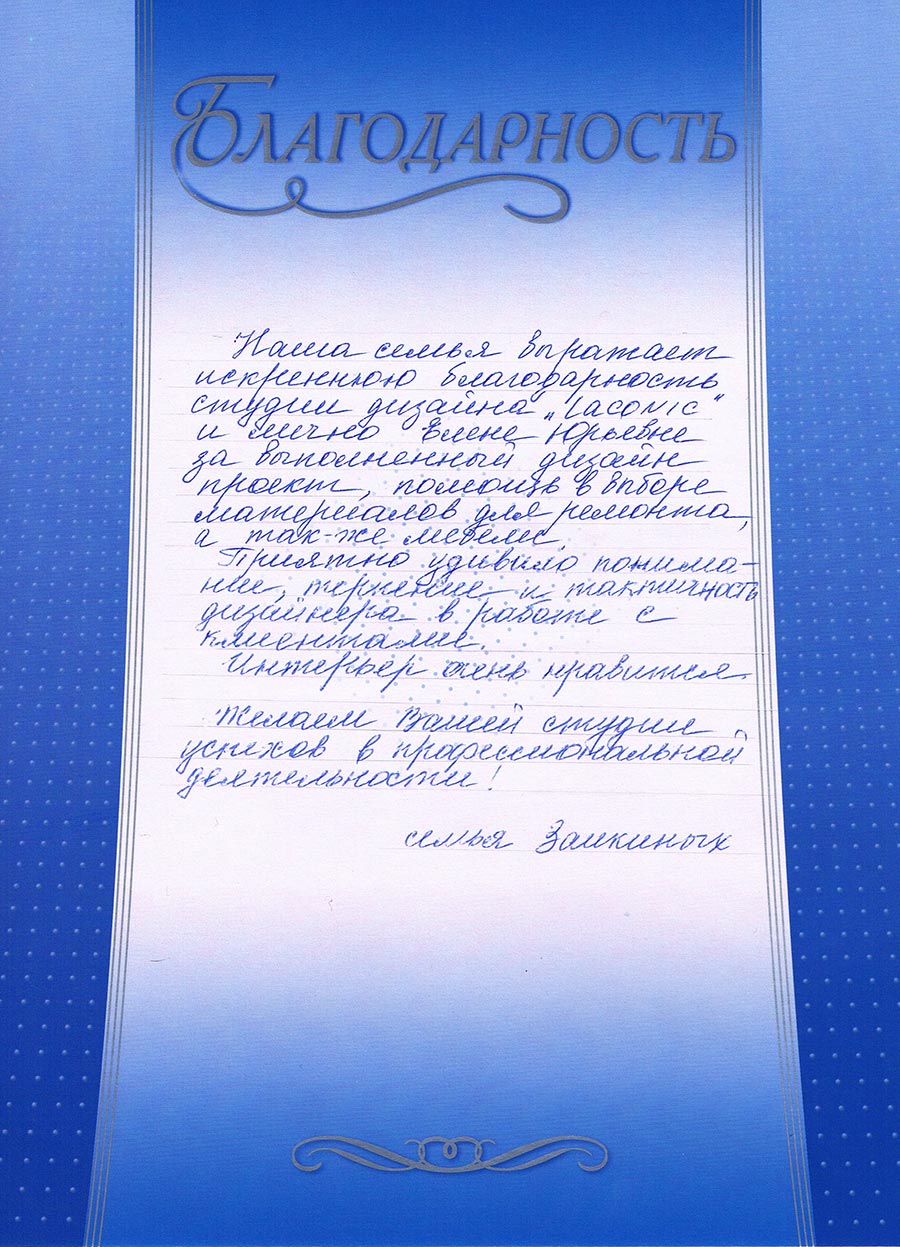 Благодарность
Наша семья выражает
искреннюю благодарность
студии дизайна „Laconic“
и лично Елене Юрьевне
за выполненный дизайн
проект, помощь в выборе
материалов для ремонта,
а так-же мебели.
Приятно удивило понима-
ние, терпение и тактичность
дизайнера в работе с
клиентами.
Интерьер очень нравится.
Желаем Вашей студии
успехов в профессиональной
деятельности!
семья Заикиных